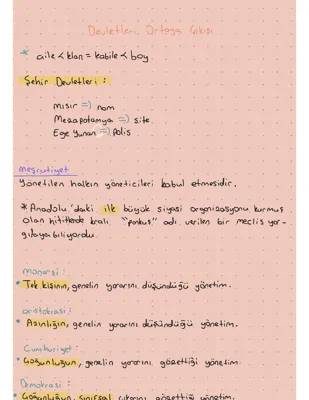 Devletleri Ortaya Çıkısı
* aile < klan = kabile < boy
Şehir Devletleri :
mısır => nom
Mezapotamya => site
Ege Yunan => Polis
meşrutiyet
Yönetilen halkın yöneticileri kabul etmesidir.
* Anadolu'daki ilk büyük siyasi organizasyonu kurmuş
olan hititlerde kralı "pankus" adı verilen bir meclis yar-
gılayabiliyordu
monarşi :
* Tek kişinin, genelin yararını düşündüğü yönetim.
aristokrasi :
* Azınlığın, genelin yararını düşündüğü yönetim.
Cumhuriyet :
* Çoğunluğun, genelin yararını gözettiği yönetim.
Demokrasi :
* Çoğunluğun, sınıfsal çıkarını gözettiği yönetim.